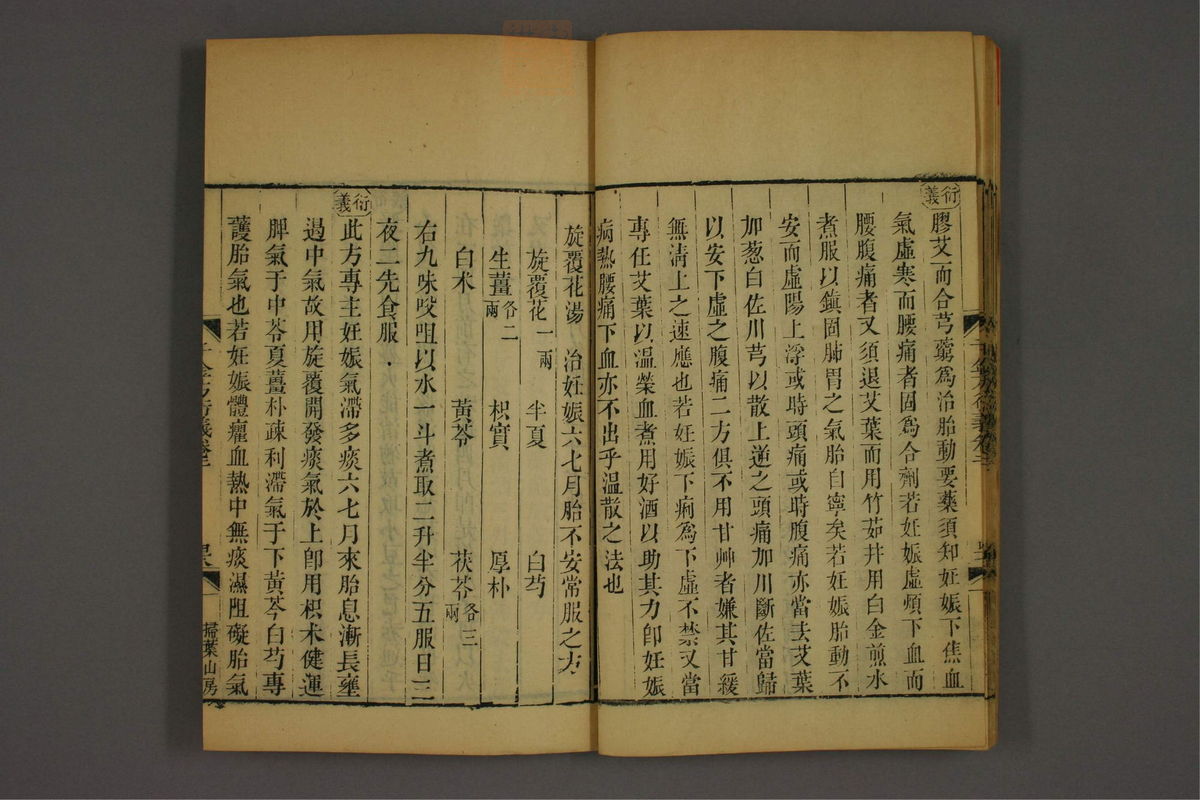 衍義
膠艾而合芎藭爲治胎動要藥須知妊娠下焦血
氣虛寒而腰痛者固爲合劑若妊娠虛煩下血而
腰腹痛者又須退艾葉而用竹茹幷用白金煎水
煮服以鎮固肺胃之氣胎自寧矣若妊娠胎動不
安而虛陽上浮或時頭痛或時腹痛亦當去艾葉
加葱白佐川芎以散上逆之頭痛加川斷佐當歸
以安下虛之腹痛二方俱不用甘艸者嫌其甘緩
無淸上之速應也若妊娠下痢爲下虛不禁又當
專任艾葉以溫榮血煮用好酒以助其力卽妊娠
病熱腰痛下血亦不出乎溫散之法也
旋覆花湯　治妊娠六七月胎不安常服之方
旋覆花一兩　半夏　白芍
生薑各二兩　枳實　厚朴
白朮　黃芩　茯苓各三兩
右九味㕮咀以水一斗煮取二升半分五服日三
夜二先食服
衍義
此方專主妊娠氣滯多痰六七月來胎息漸長壅
遏中氣故用旋覆開發痰氣於上卽用枳朮健運
脾氣于中苓夏薑朴疎利滯氣于下黃芩白芍專
護胎氣也若妊娠體癯血熱中無痰濕阻礙胎氣
千金方衍義卷二
掃葉山房